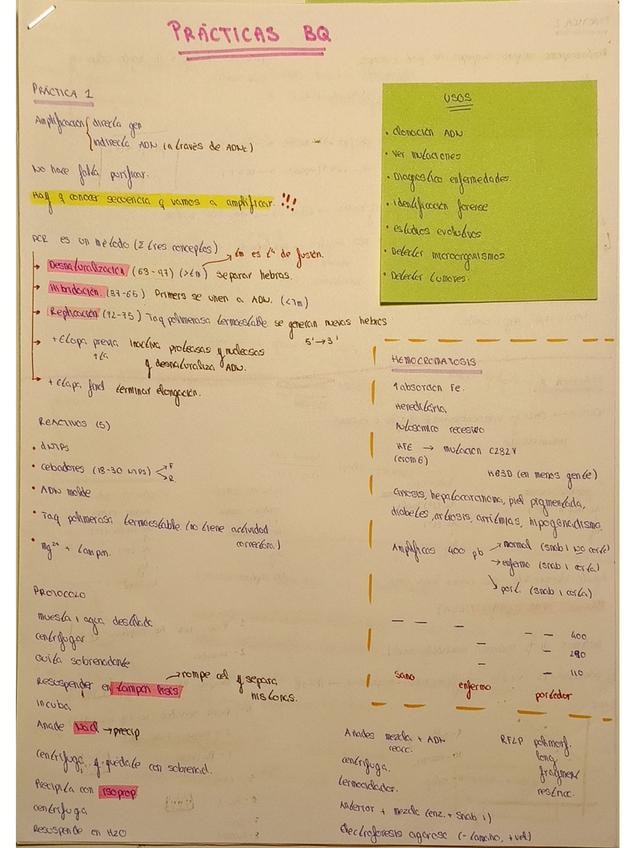 PRÁCTICAS BQ
PRÁCTICA 1
Amplificación directa gen
indirecta ADN (a través de ADNc)
No hace falta purificar.
Hay q conocer secuencia q vamos a amplificar. !!!
PCR es un método (2 tres conceptos)
tm es tª de fusión.
Desnaturalización (63-97) (>tm) separar hebras.
Hibridación (37-65) Primers se unen a ADN. (<Tm)
Replicación (72-75) Taq polimerasa termoestable se generan nuevas hebras
5'→3'
+ Etapa previa inactiva proteasas y nucleasas
+ta
y desnaturaliza ADN.
+ Etapa final terminar elongación.
REACTIVOS (5)
• dNTPs
• cebadores (18-30 NTPs) F
R
• ADN molde
• Taq polimerasa termoestable (no tiene actividad
correctora.)
• Mg²⁺ + tampon.
PROTOCOLO
muestra 1 agua destilada
centrifugar
quita sobrenadante
Resuspender en tampon lisis → rompe cel y separa
histonas.
incuba
Añade NaCl → precip
centrifuga, q. quédate con sobrenad.
Precipita con isoprop
centrifuga
Resuspende en H2O
USOS
• clonación ADN
• Ver mutaciones
• Diagnóstico enfermedades.
• identificación forense
• estudios evolutivos
• Detectar microorganismos
• Detectar tumores.
HEMOCROMATOSIS
↑absorción Fe.
Hereditaria
Autosómico recesivo
HFE → mutación C282Y
(crom 6)
H63D (en menos gente)
cirrosis, hepatocarcinoma, piel pigmentada,
diabetes, artrosis, arritmias, hipogonadismo
Amplificas 400 pb → normal (snab 1 NO corta)
→ enfermo (snab 1 corta)
→ port. (snab 1 corta)
400
290
110
sano enfermo portador
Añades mezcla + ADN
reacc.
centrifuga.
termociclador.
Anterior + mezcla (enz. + snab 1)
Electroforesis agarosa (- tamaño, + vel)
RFLP polimorf.
long.
fragment
restricc.